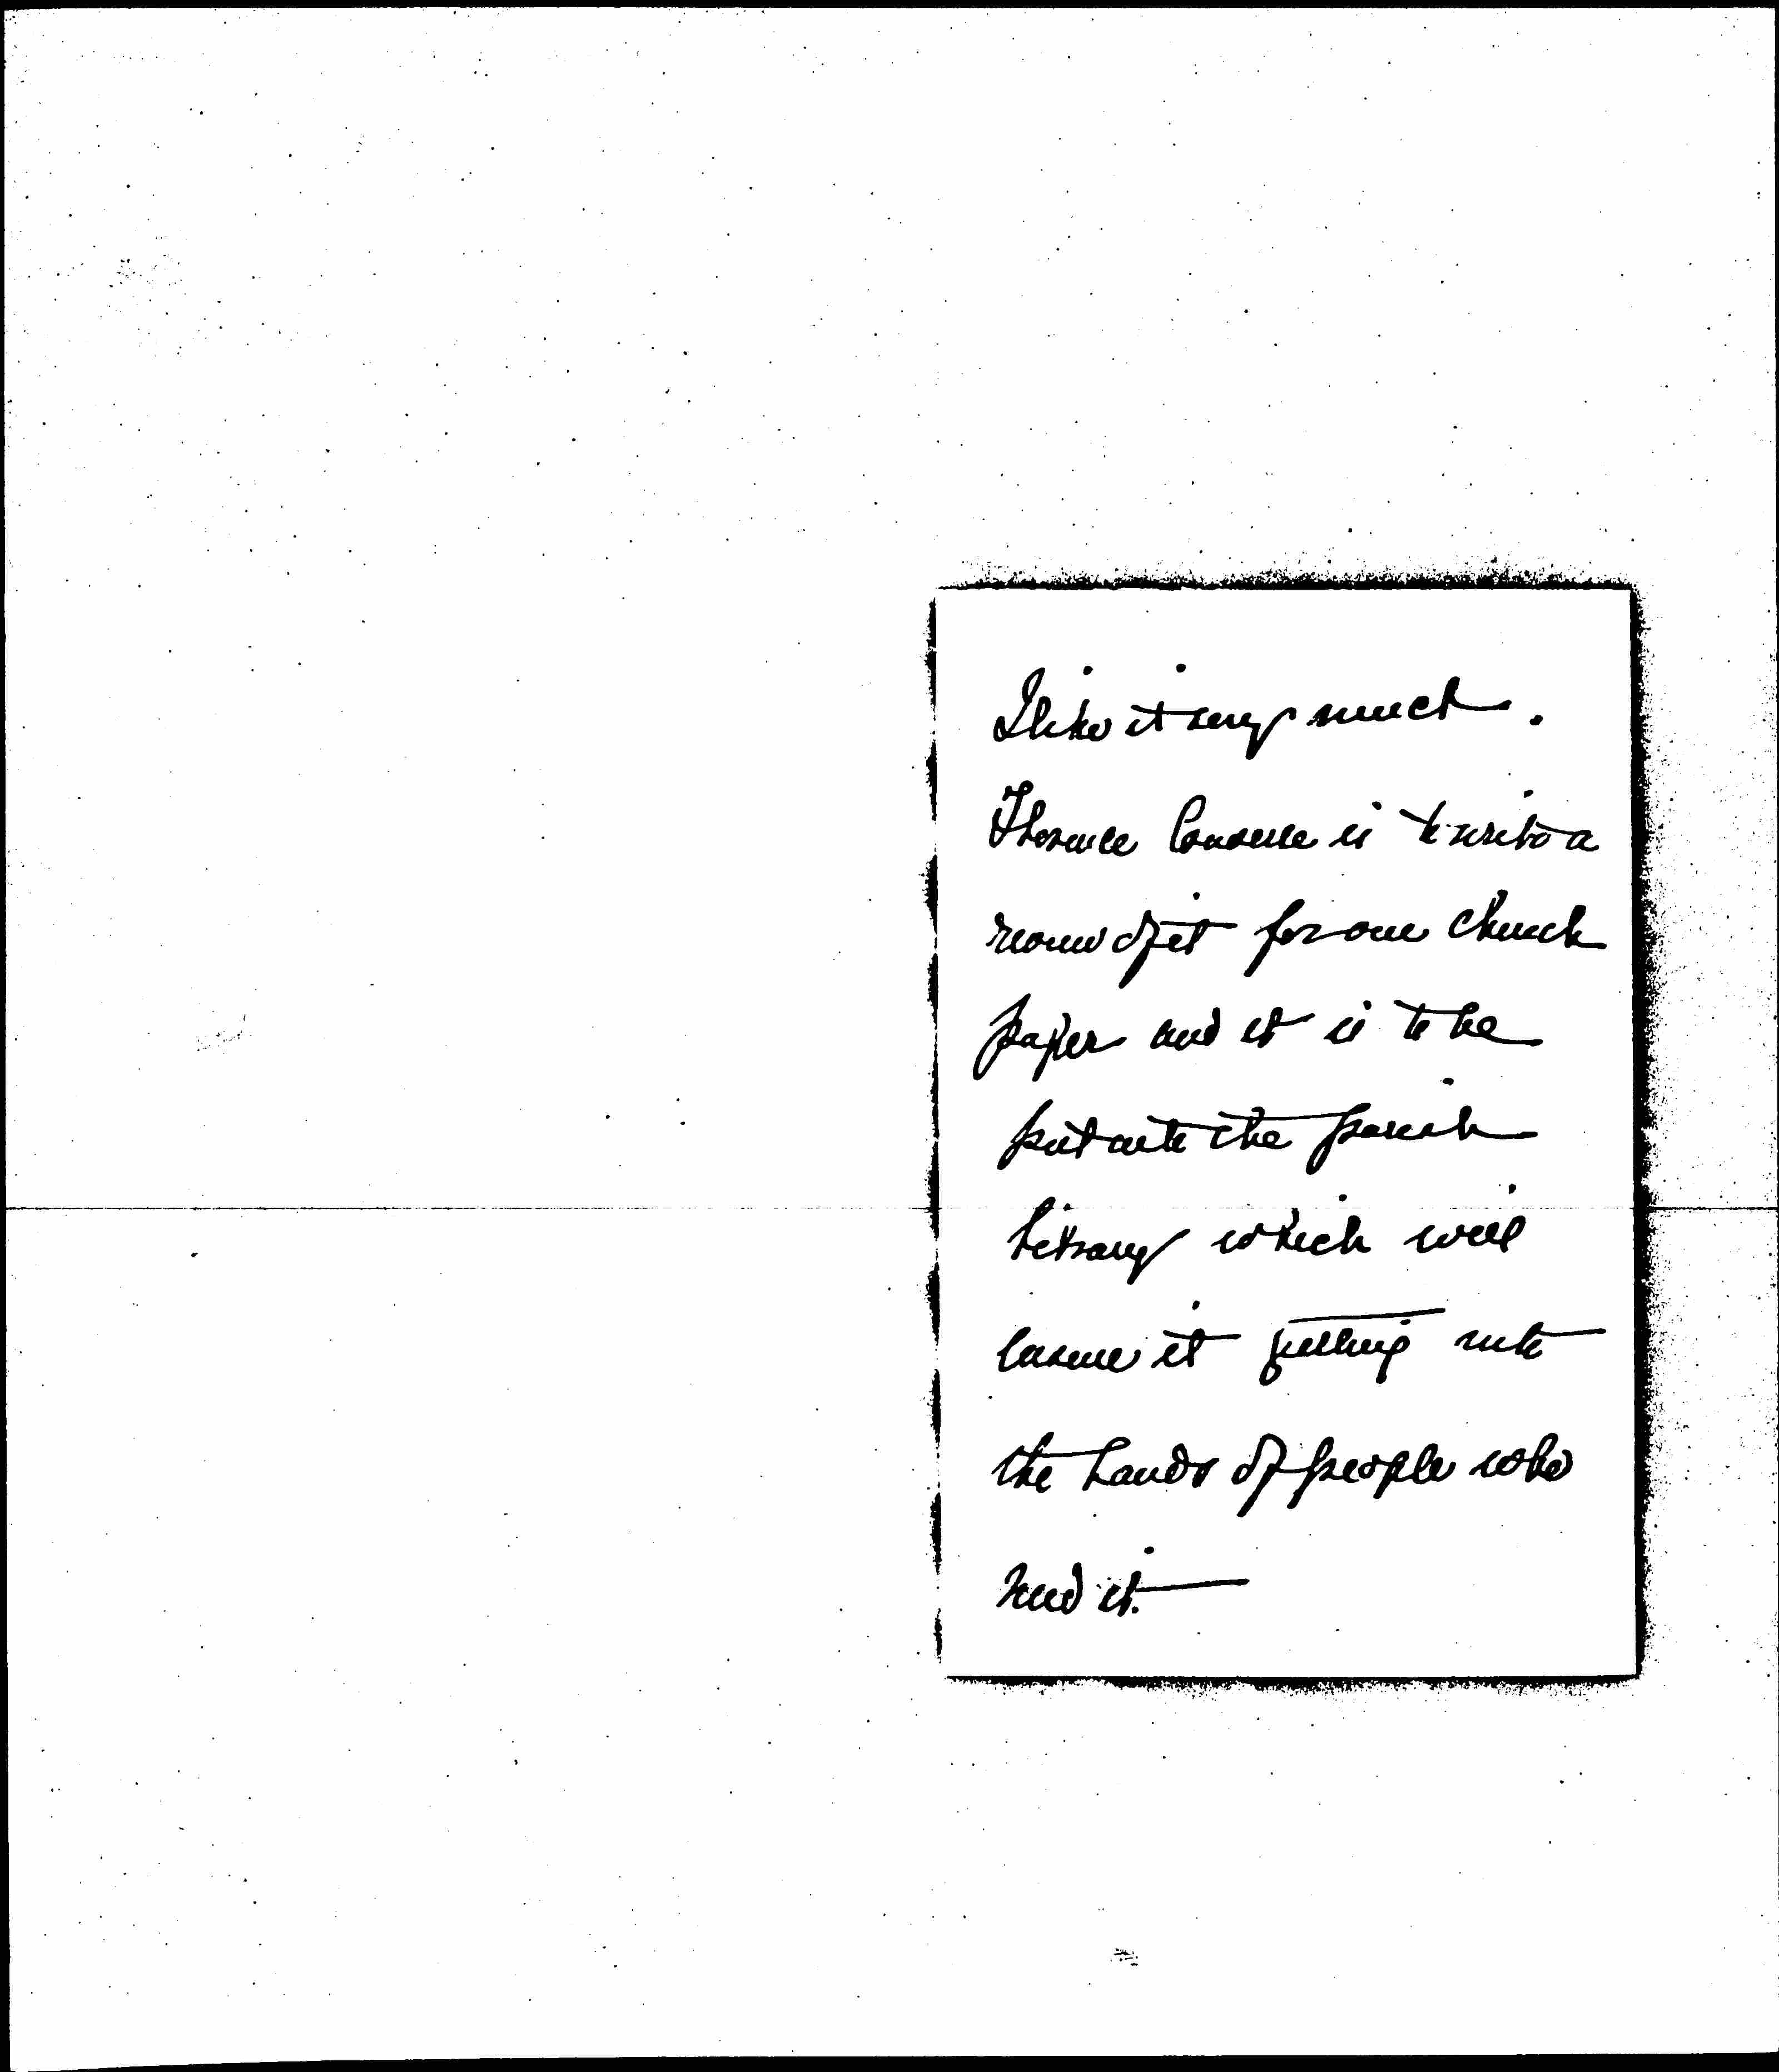 I like it very much.
Florence Converse is to write a
review of it for our church
paper and it is to be
put into the parish
library which will
insure it getting into
the hands of people who
need it.